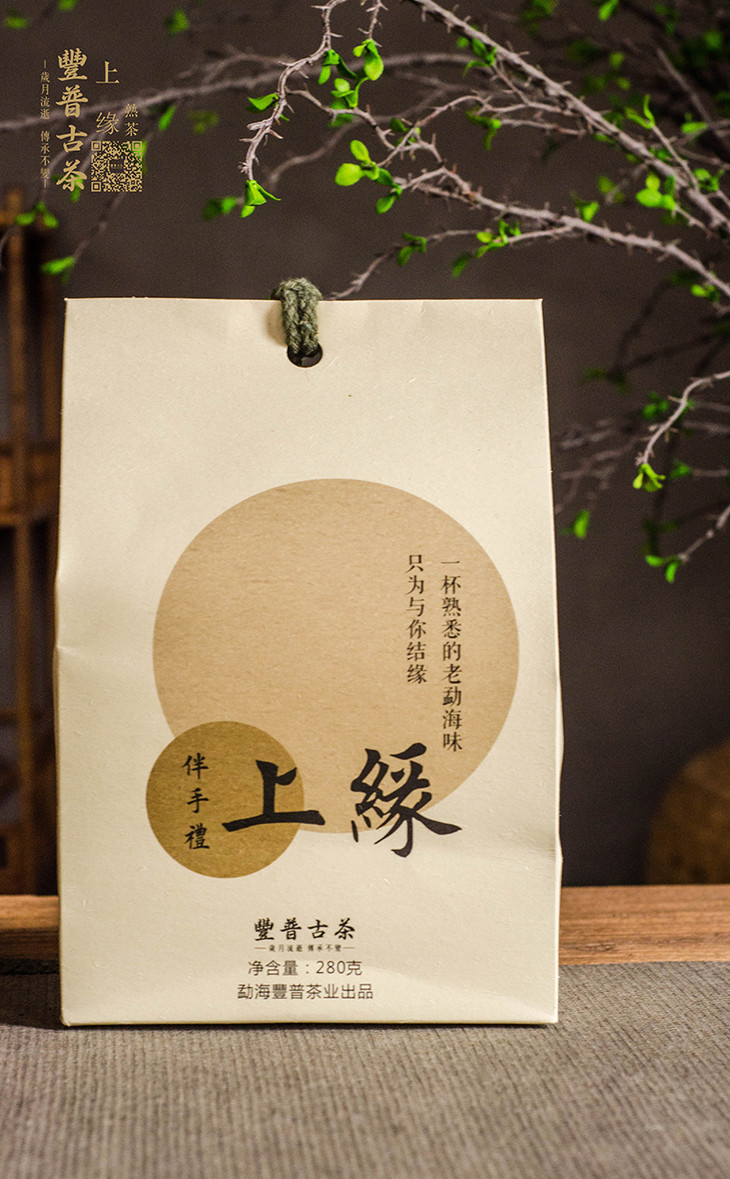 上缘
熟茶
豐普古茶
歲月流逝 傳承不變
一杯熟悉的老勐海味
只为与你结缘
伴手禮
上緣
豐普古茶
歲月流逝 傳承不變
净含量：280克
勐海豐普茶业出品